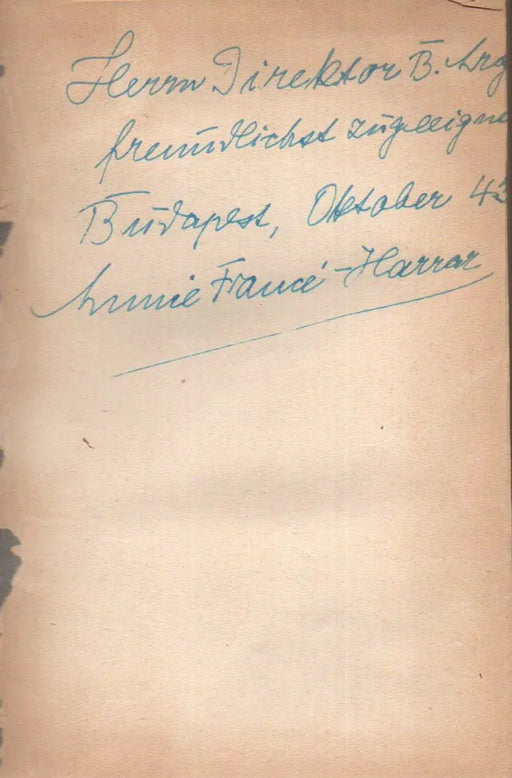 Herrn Direktor B. Arg
freundlichst zugeeigne
Budapest, Oktober 43
Annie Francé-Harrar